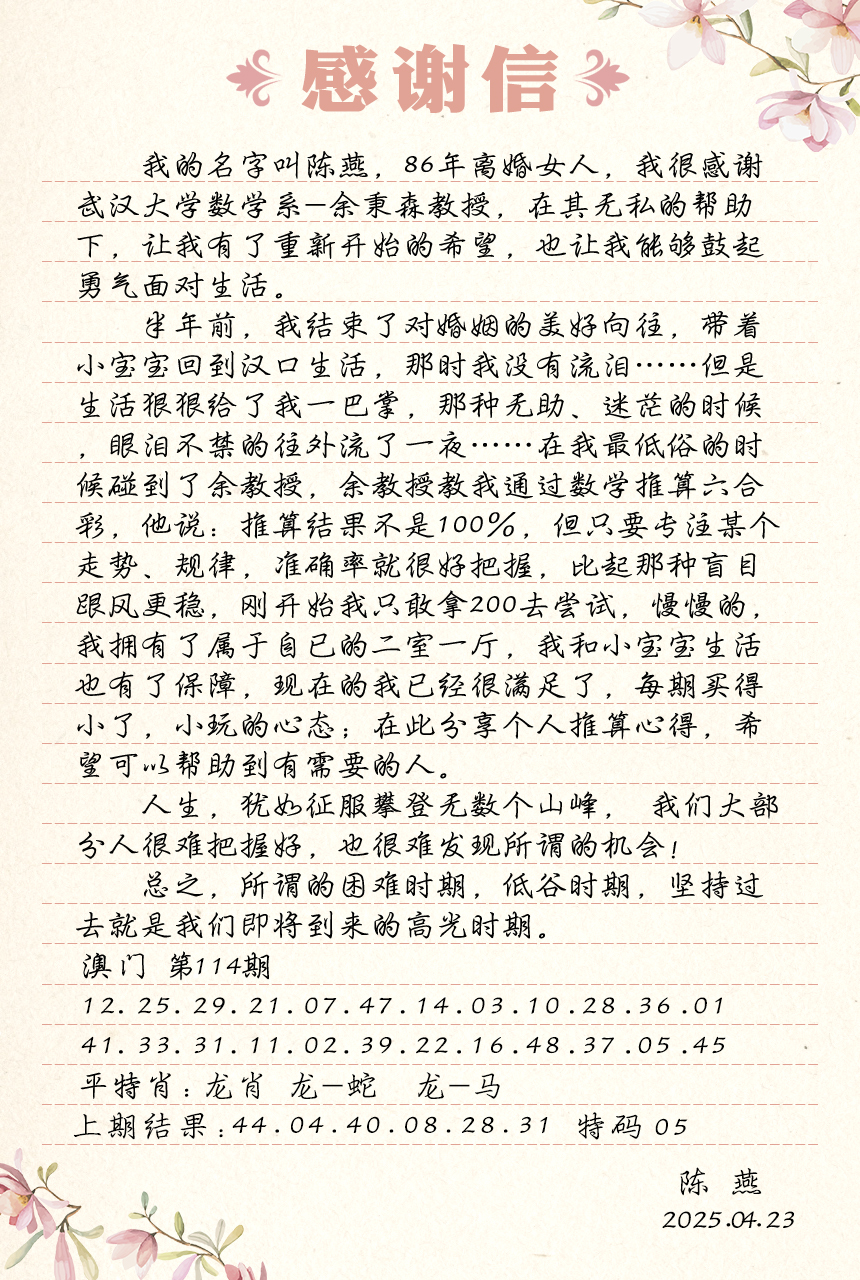 感谢信
我的名字叫陈燕，86年离婚女人，我很感谢
武汉大学数学系—余秉森教授，在其无私的帮助
下，让我有了重新开始的希望，也让我能够鼓起
勇气面对生活。
半年前，我结束了对婚姻的美好向往，带着
小宝宝回到汉口生活，那时我没有流泪……但是
生活狠狠给了我一巴掌，那种无助、迷茫的时候
，眼泪不禁的往外流了一夜……在我最低俗的时
候碰到了余教授，余教授教我通过数学推算六合
彩，他说：推算结果不是100%，但只要专注某个
走势、规律，准确率就很好把握，比起那种盲目
跟风更稳，刚开始我只敢拿200去尝试，慢慢的，
我拥有了属于自已的二室一厅，我和小宝宝生活
也有了保障，现在的我已经很满足了，每期买得
小了，小玩的心态；在此分享个人推算心得，希
望可以帮助到有需要的人。
人生，犹如征服攀登无数个山峰， 我们大部
分人很难把握好，也很难发现所谓的机会！
总之，所谓的困难时期，低谷时期，坚持过
去就是我们即将到来的高光时期。
澳门 第114期
12.25.29.21.07.47.14.03.10.28.36.01
41.33.31.11.02.39.22.16.48.37.05.45
平特肖：龙肖 龙—蛇 龙—马
上期结果：44.04.40.08.28.31 特码 05
陈 燕
2025.04.23